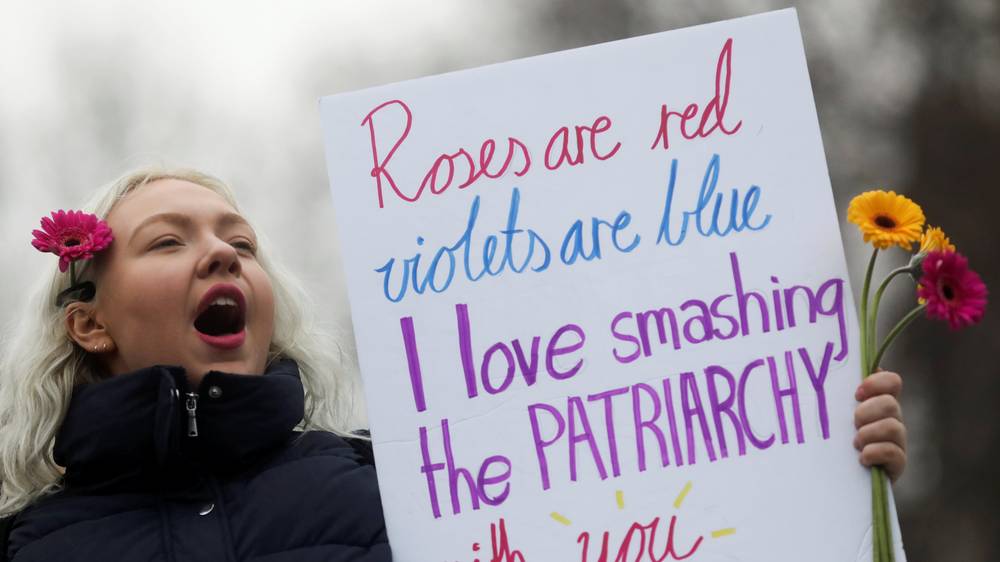 Roses are red
violets are blue
I love smashing
the PATRIARCHY
with you